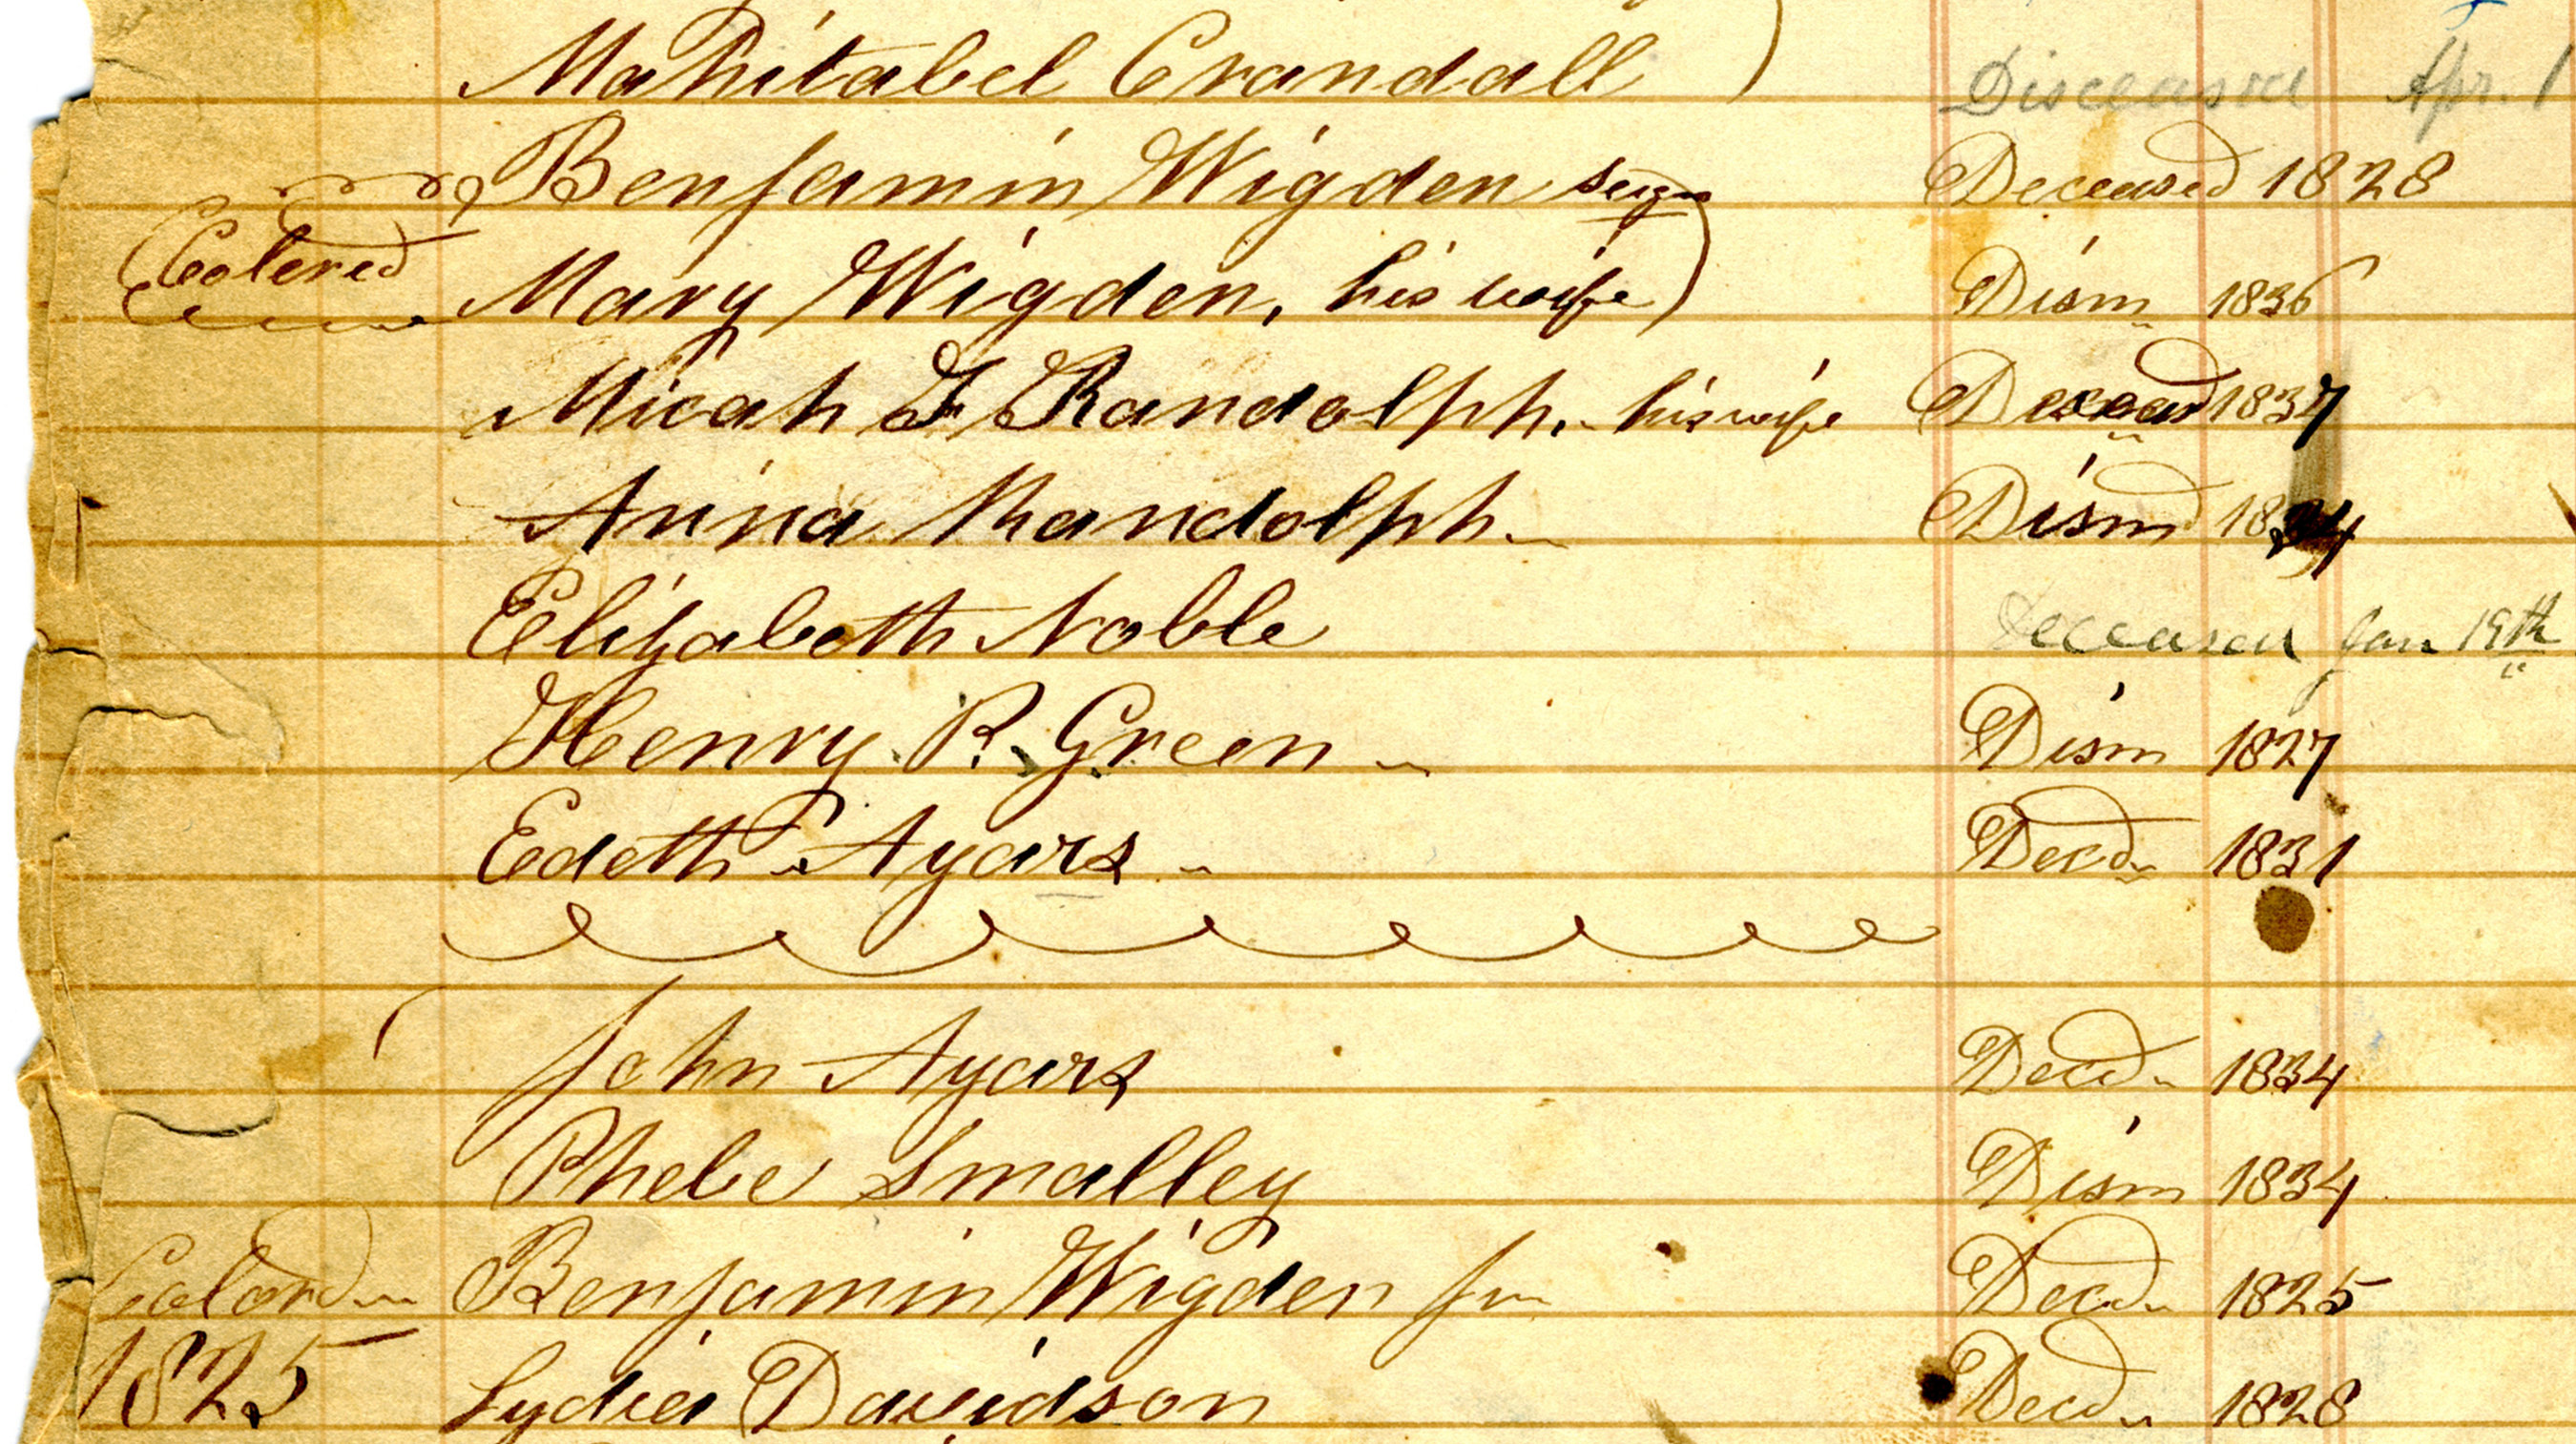 Mahitabel Crandall Disceased Apr. 1
Benjamin Wigden Deceased 1828
Colered
Mary Wigden, his wife) Dism 1836
Micah F Randolph. his wife Deceasd 1837
Anna Randolph Dismd 1834
Elizabeth Noble Deceased Jan 19th
Henry P. Green Dism 1827
Edeth Ayars Decd 1831
John Ayars Decd 1834
Phebe Smalley Dism 1834
Colord Benjamin Wigden Jn Decd 1825
1825 Lydia Davidson Decd 1828